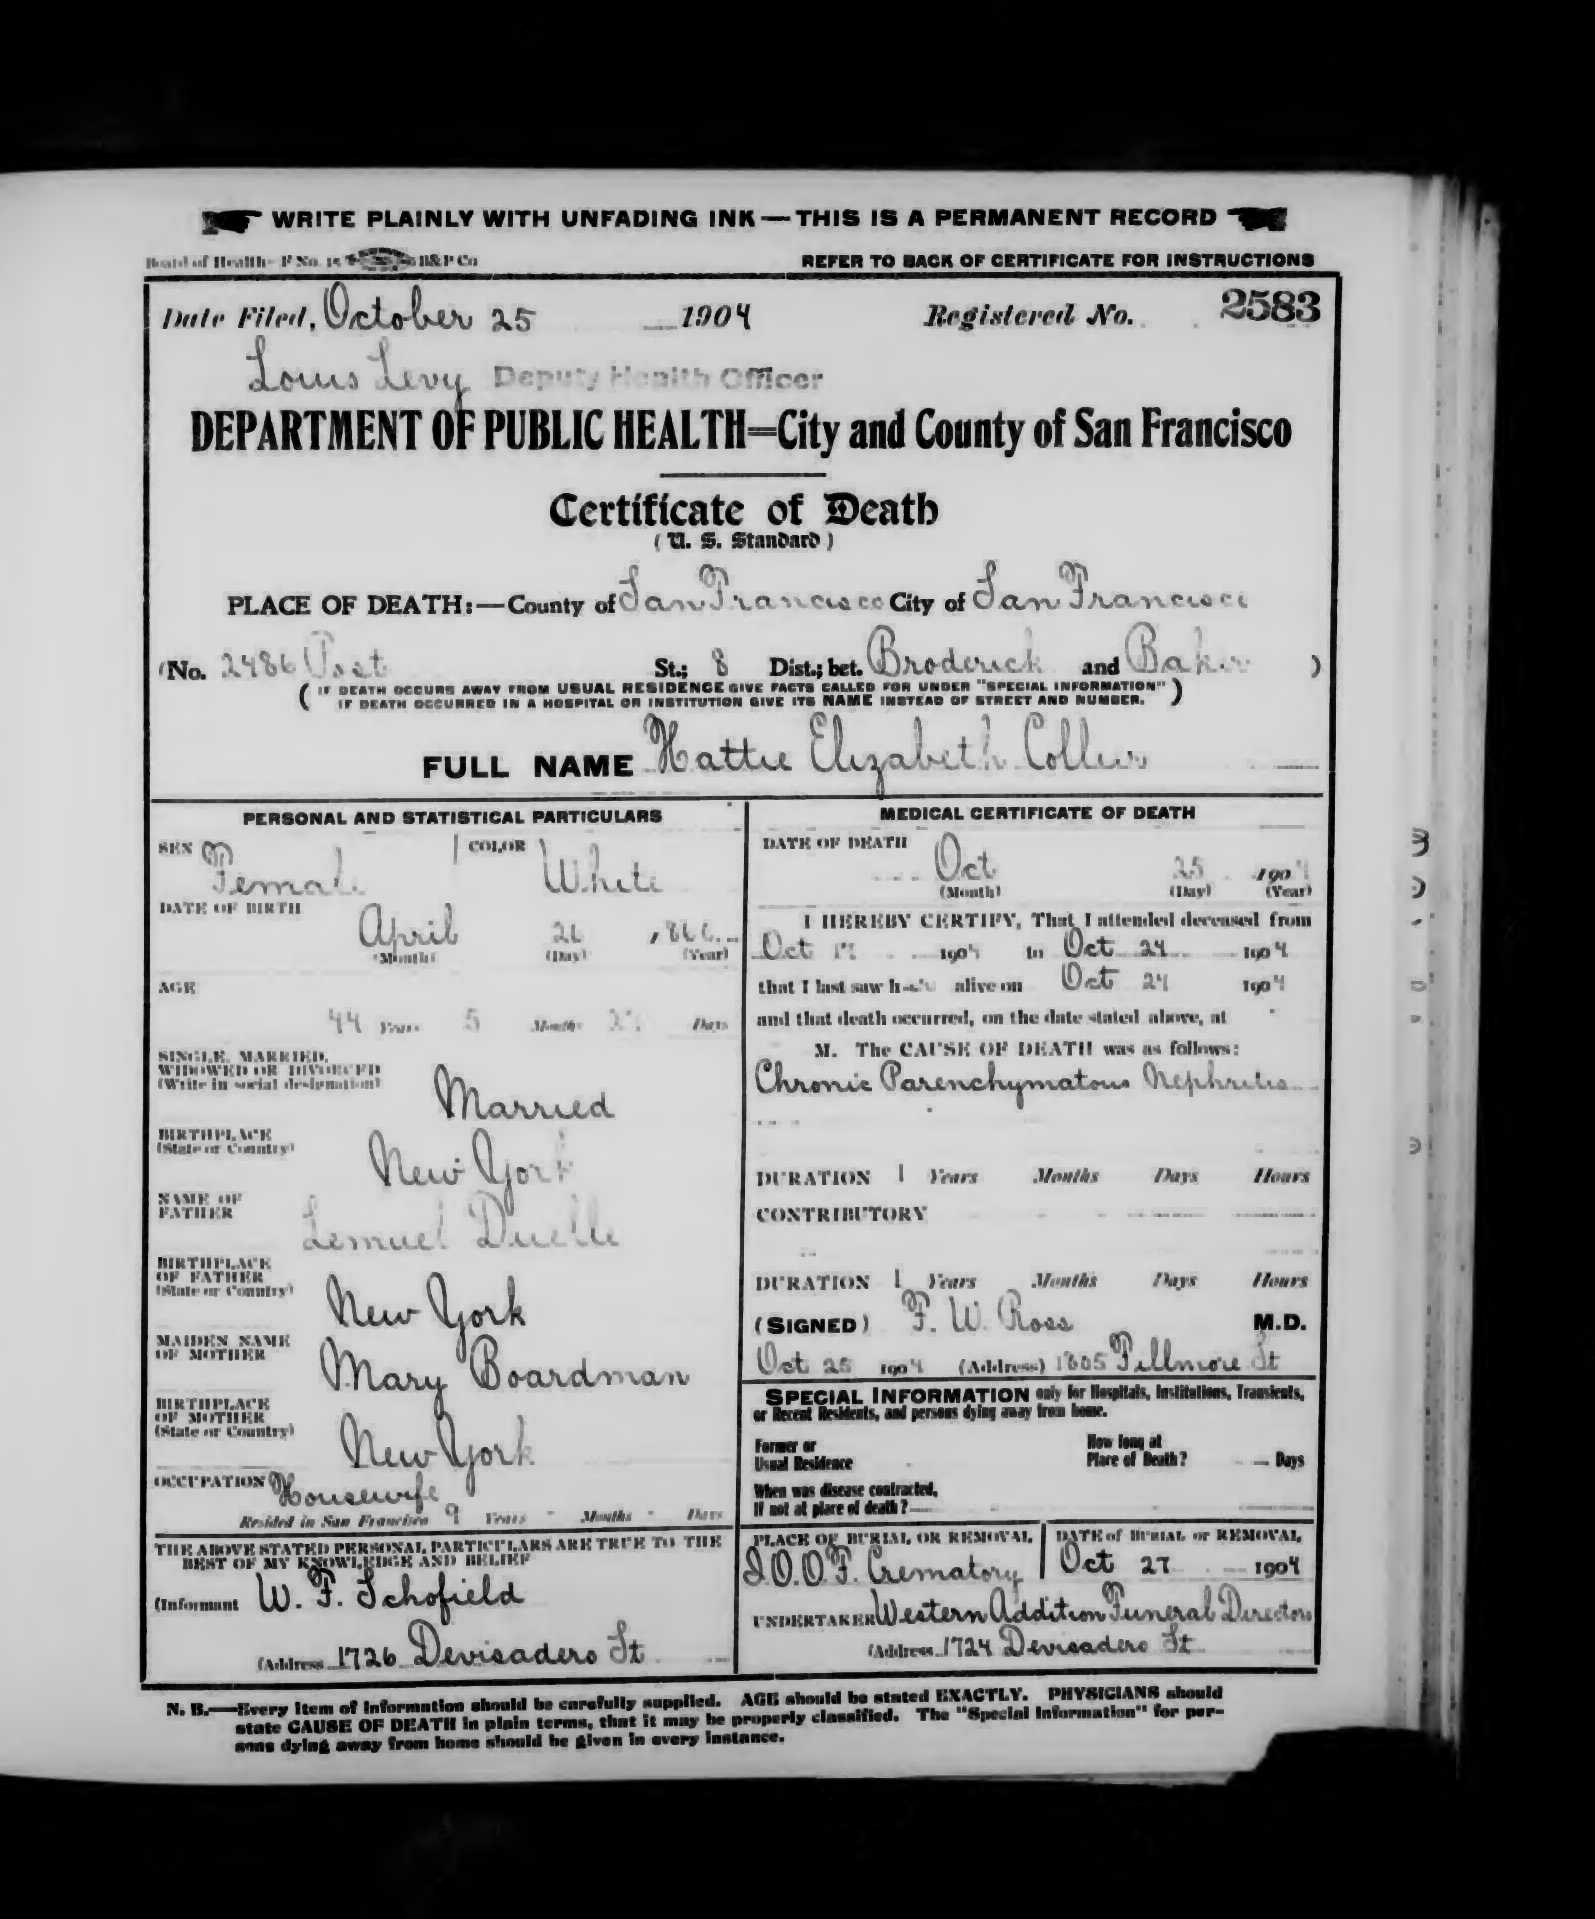 WRITE PLAINLY WITH UNFADING INK — THIS IS A PERMANENT RECORD
Board of Health—F No. 15 B&P Co
REFER TO BACK OF CERTIFICATE FOR INSTRUCTIONS
Date Filed, October 25 1904 Registered No. 2583
Louis Levy Deputy Health Officer
DEPARTMENT OF PUBLIC HEALTH=City and County of San Francisco
Certificate of Death
(U. S. Standard)
PLACE OF DEATH:—County of San Francisco City of San Francisco
(No. 2486 Post St.; 8 Dist.; bet. Broderick and Baker )
( IF DEATH OCCURS AWAY FROM USUAL RESIDENCE GIVE FACTS CALLED FOR UNDER "SPECIAL INFORMATION" )
IF DEATH OCCURRED IN A HOSPITAL OR INSTITUTION GIVE ITS NAME INSTEAD OF STREET AND NUMBER.
FULL NAME Hattie Elizabeth Collier
PERSONAL AND STATISTICAL PARTICULARS
SEX Female COLOR White
DATE OF BIRTH
April
(Month) (Day) (Year)
AGE
44 Years 5 Months Days
SINGLE, MARRIED,
WIDOWED OR DIVORCED
(Write in social designation)
Married
BIRTHPLACE
(State or Country)
New York
NAME OF
FATHER
Lemuel Duelle
BIRTHPLACE
OF FATHER
(State or Country)
New York
MAIDEN NAME
OF MOTHER
Mary Boardman
BIRTHPLACE
OF MOTHER
(State or Country)
New York
OCCUPATION Housewife
Resided in San Francisco 9 Years - Months - Days
THE ABOVE STATED PERSONAL PARTICULARS ARE TRUE TO THE
BEST OF MY KNOWLEDGE AND BELIEF
(Informant W. F. Schofield
(Address 1726 Devisadero St
MEDICAL CERTIFICATE OF DEATH
DATE OF DEATH
Oct 25 1904
(Month) (Day) (Year)
I HEREBY CERTIFY, That I attended deceased from
Oct 1904 to Oct 24 1904
that I last saw h alive on Oct 24 1904
and that death occurred, on the date stated above, at
M. The CAUSE OF DEATH was as follows:
Chronic Parenchymatous Nephritis
DURATION 1 Years Months Days Hours
CONTRIBUTORY
DURATION 1 Years Months Days Hours
(SIGNED) F. W. Ross M.D.
Oct 25 1904 (Address) 1605 Fillmore St
SPECIAL INFORMATION only for Hospitals, Institutions, Transients,
or Recent Residents, and persons dying away from home.
Former or
Usual Residence
How long at
Place of Death? Days
When was disease contracted,
If not at place of death?
PLACE OF BURIAL OR REMOVAL
I.O.O.F. Crematory
DATE of BURIAL or REMOVAL
Oct 27 1904
UNDERTAKER Western Addition Funeral Directors
(Address 1724 Devisadero St
N. B.—Every item of information should be carefully supplied. AGE should be stated EXACTLY. PHYSICIANS should
state CAUSE OF DEATH in plain terms, that it may be properly classified. The "Special Information" for per-
sons dying away from home should be given in every instance.